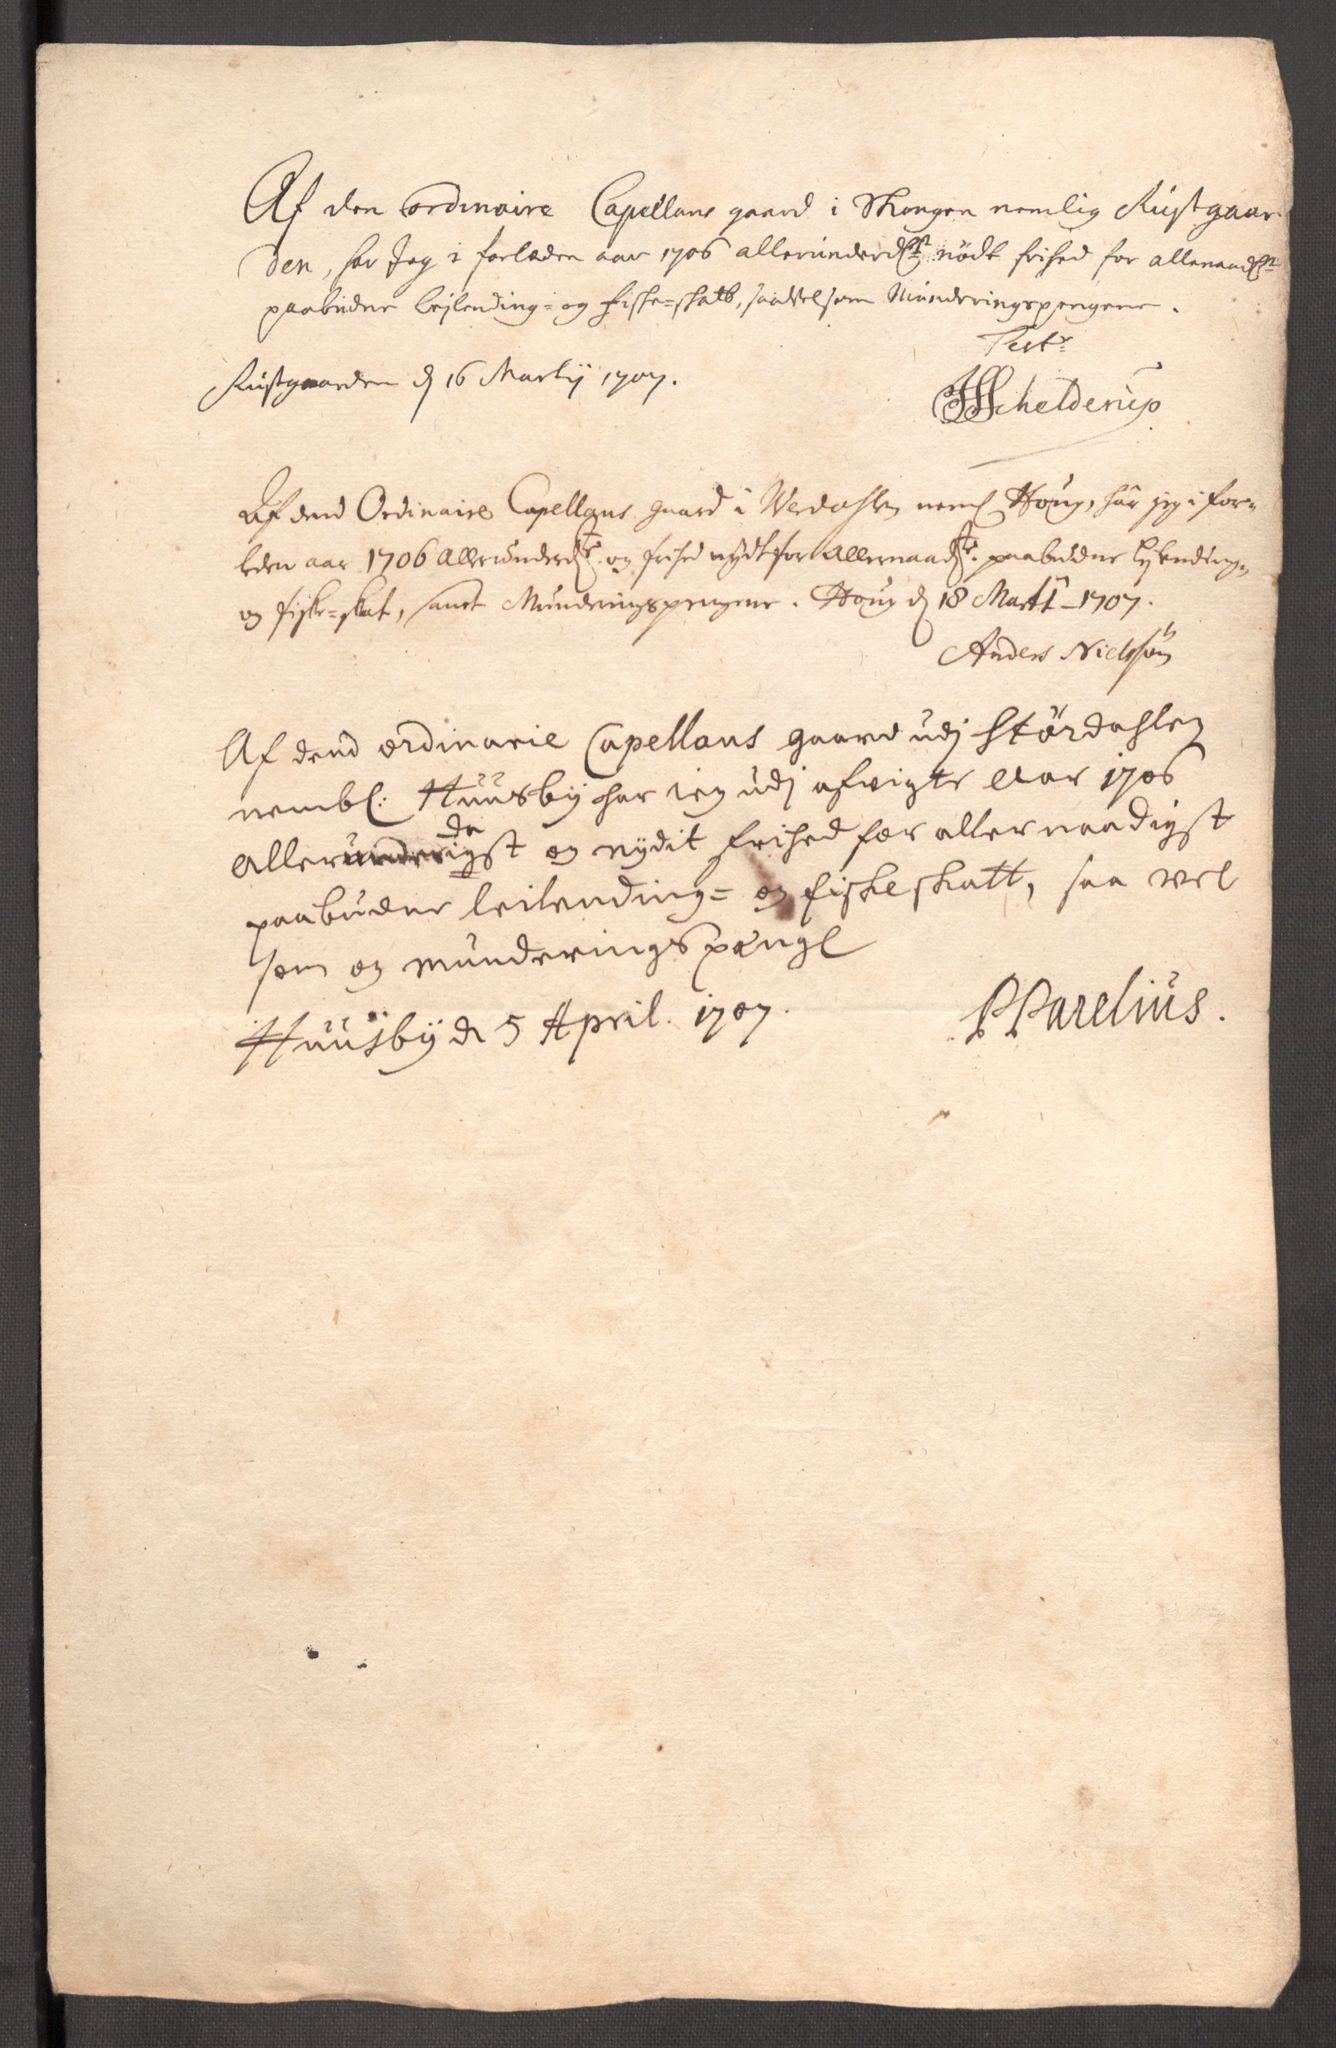 Af den ordinaire Capellans gaard i Skongen nemlig Rustgaar-
den, har Jeg i forleden aar 1706 allerunderdst nödt frihed for allernaadst
paabudne leilending- og fiske-skatt, saavelsom Munderingspengene.
Test
Rustgaarden d 16 Martij 1707.
Schelderup
Af dend Ordinaire Capellans gaard i Werdahlen neml Houg, har jeg i for-
leden aar 1706 Allerunderdst og frihed nydt for Allernaadst paabudne Leylending-
og fiske-skat, samt Munderingspengene. Houg d 18 Martî 1707.
Anders Nielssön
Af dend ordinarie Capellans gaard udj Størdahlen
nembl: Huusby har ieg udj afvigte Aar 1706
da
allerunderigst og nydit frihed for allernaadigst
paabudne leilending- og fiskeskatt, saa vel
som og munderingspenge
Huusby d 5 April. 1707.
PParelius.